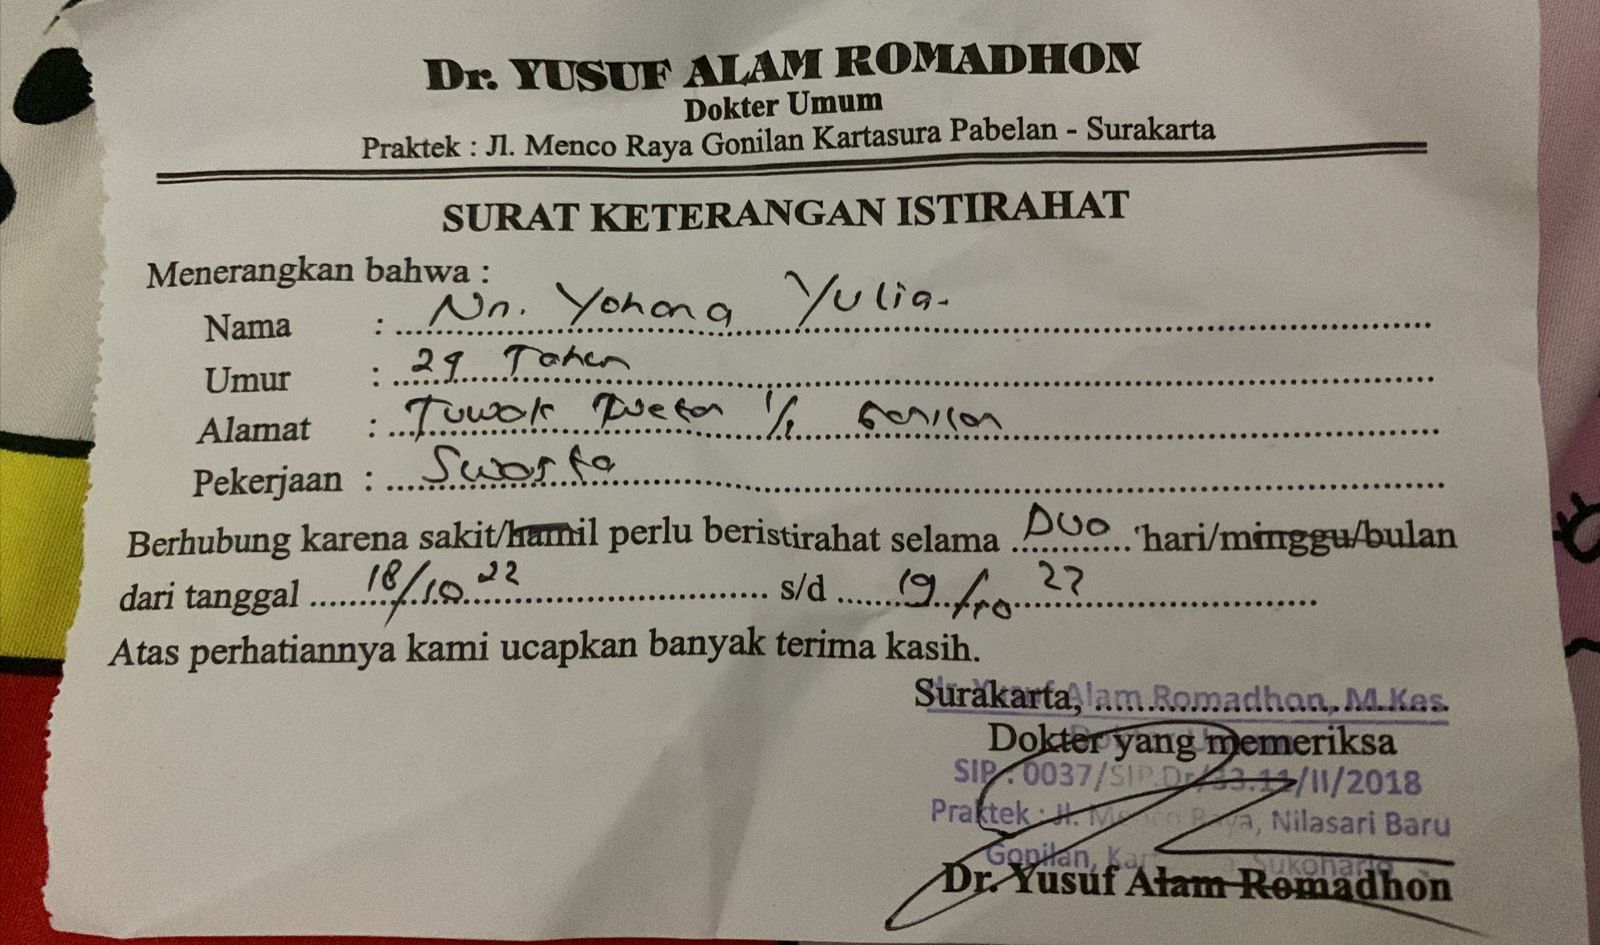 Dr. YUSUF ALAM ROMADHON
Dokter Umum
Praktek : Jl. Menco Raya Gonilan Kartasura Pabelan - Surakarta
SURAT KETERANGAN ISTIRAHAT
Menerangkan bahwa :
Nama : Nn. Yohana Yulia.
Umur : 29 Tahun
Alamat : Tuwak 1/1 Gonilan
Pekerjaan : Swasta
Berhubung karena sakit/hamil perlu beristirahat selama Dua hari/minggu/bulan
dari tanggal 18/10 22 s/d 19/10 22
Atas perhatiannya kami ucapkan banyak terima kasih.
Surakarta,
Alam Romadhon, M.Kes.
Dokter yang memeriksa
SIP : 0037/SIP.Dr/33.11/II/2018
Praktek : Jl. Menco Raya, Nilasari Baru
Gonilan, Sukoharjo
Dr. Yusuf Alam Romadhon